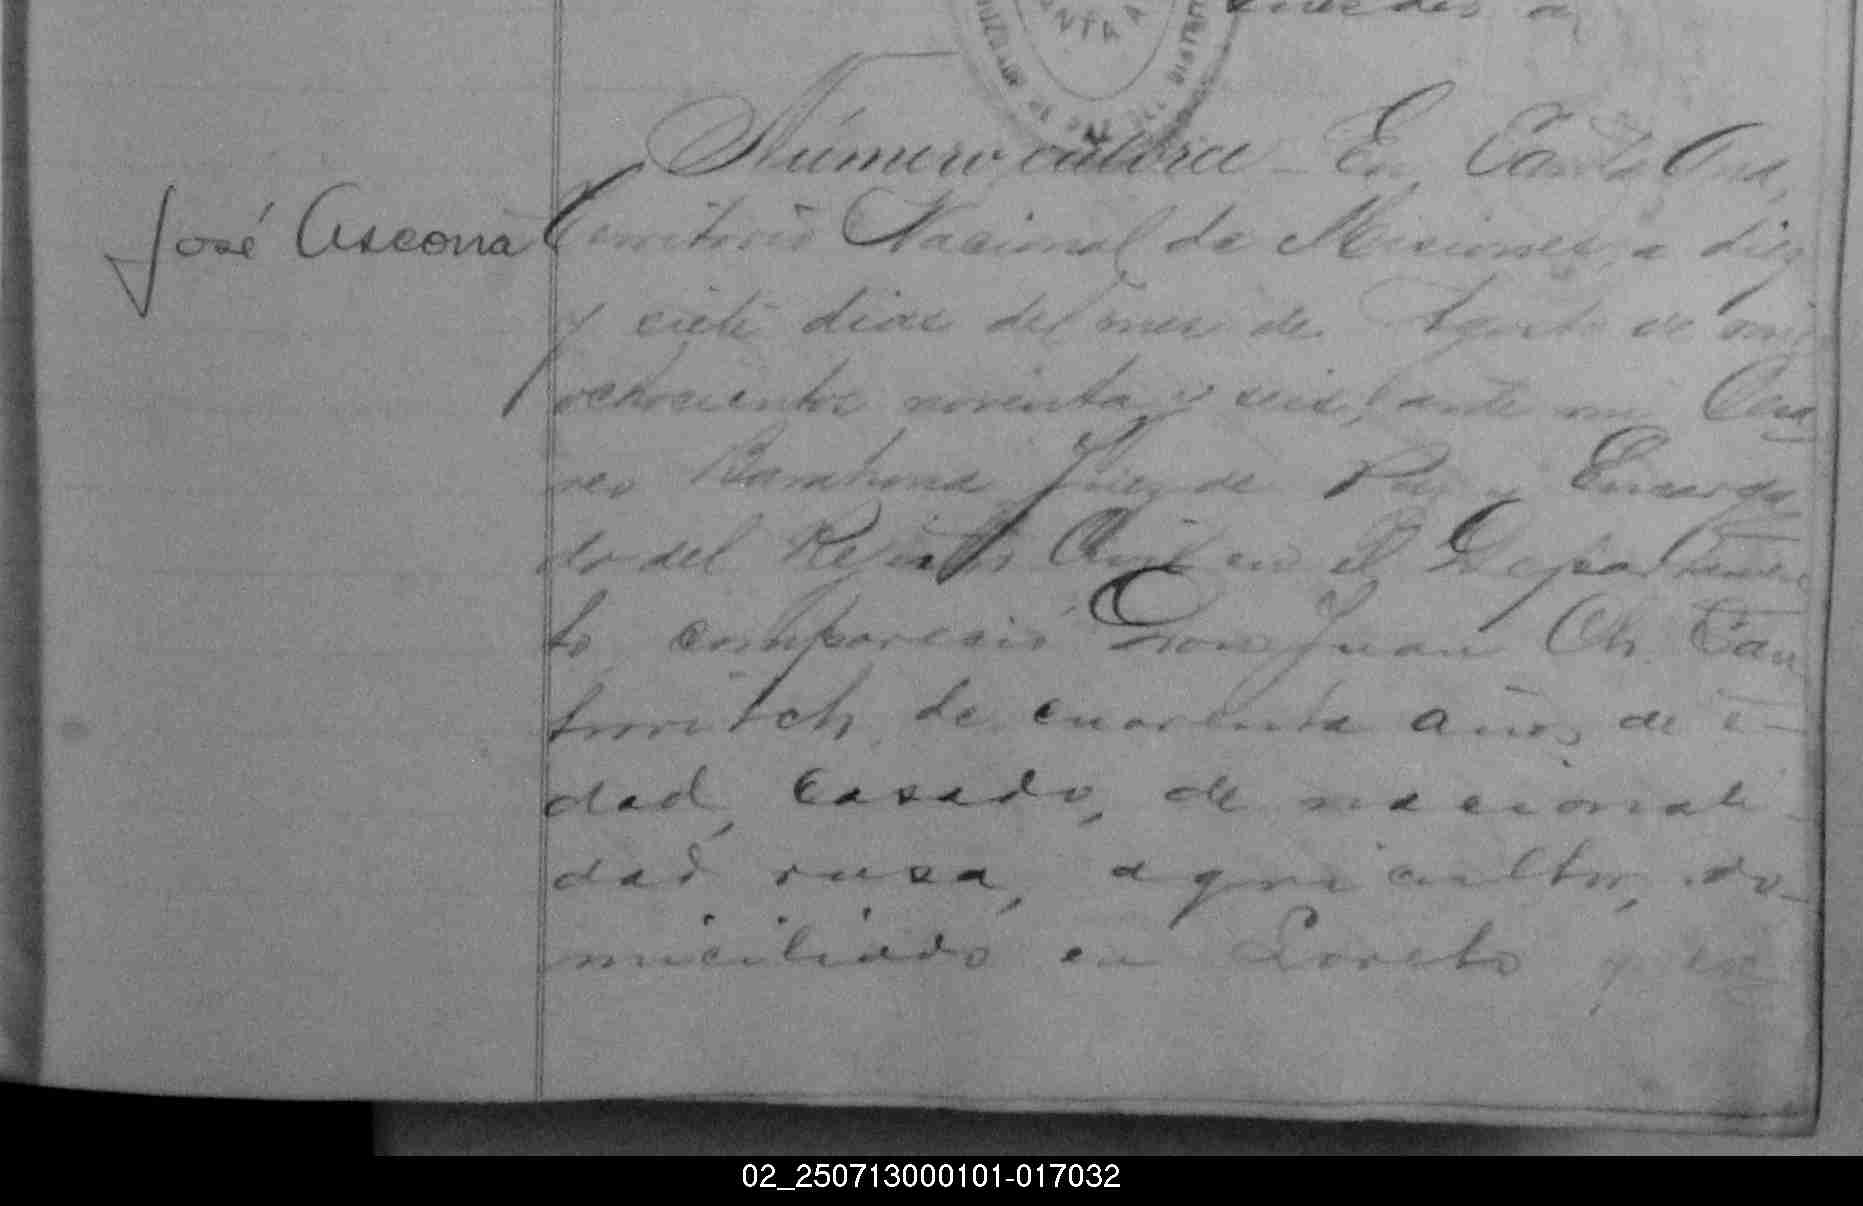 Número catorce - En Santa Ana,
José Ascona Territorio Nacional de Misiones, a diez
y siete dias del mes de Agosto de mil
ochocientos noventa y seis, ante mi
Barahona Juez de Paz y Encarga
do del Rejistro Civil en el Departamen
to, comparesió Don Juan Ch.
de cuarenta años de e-
dad, casado, de nacionali-
dad rusa, agricultor, do-
miciliado en Loreto y en
02_250713000101-017032